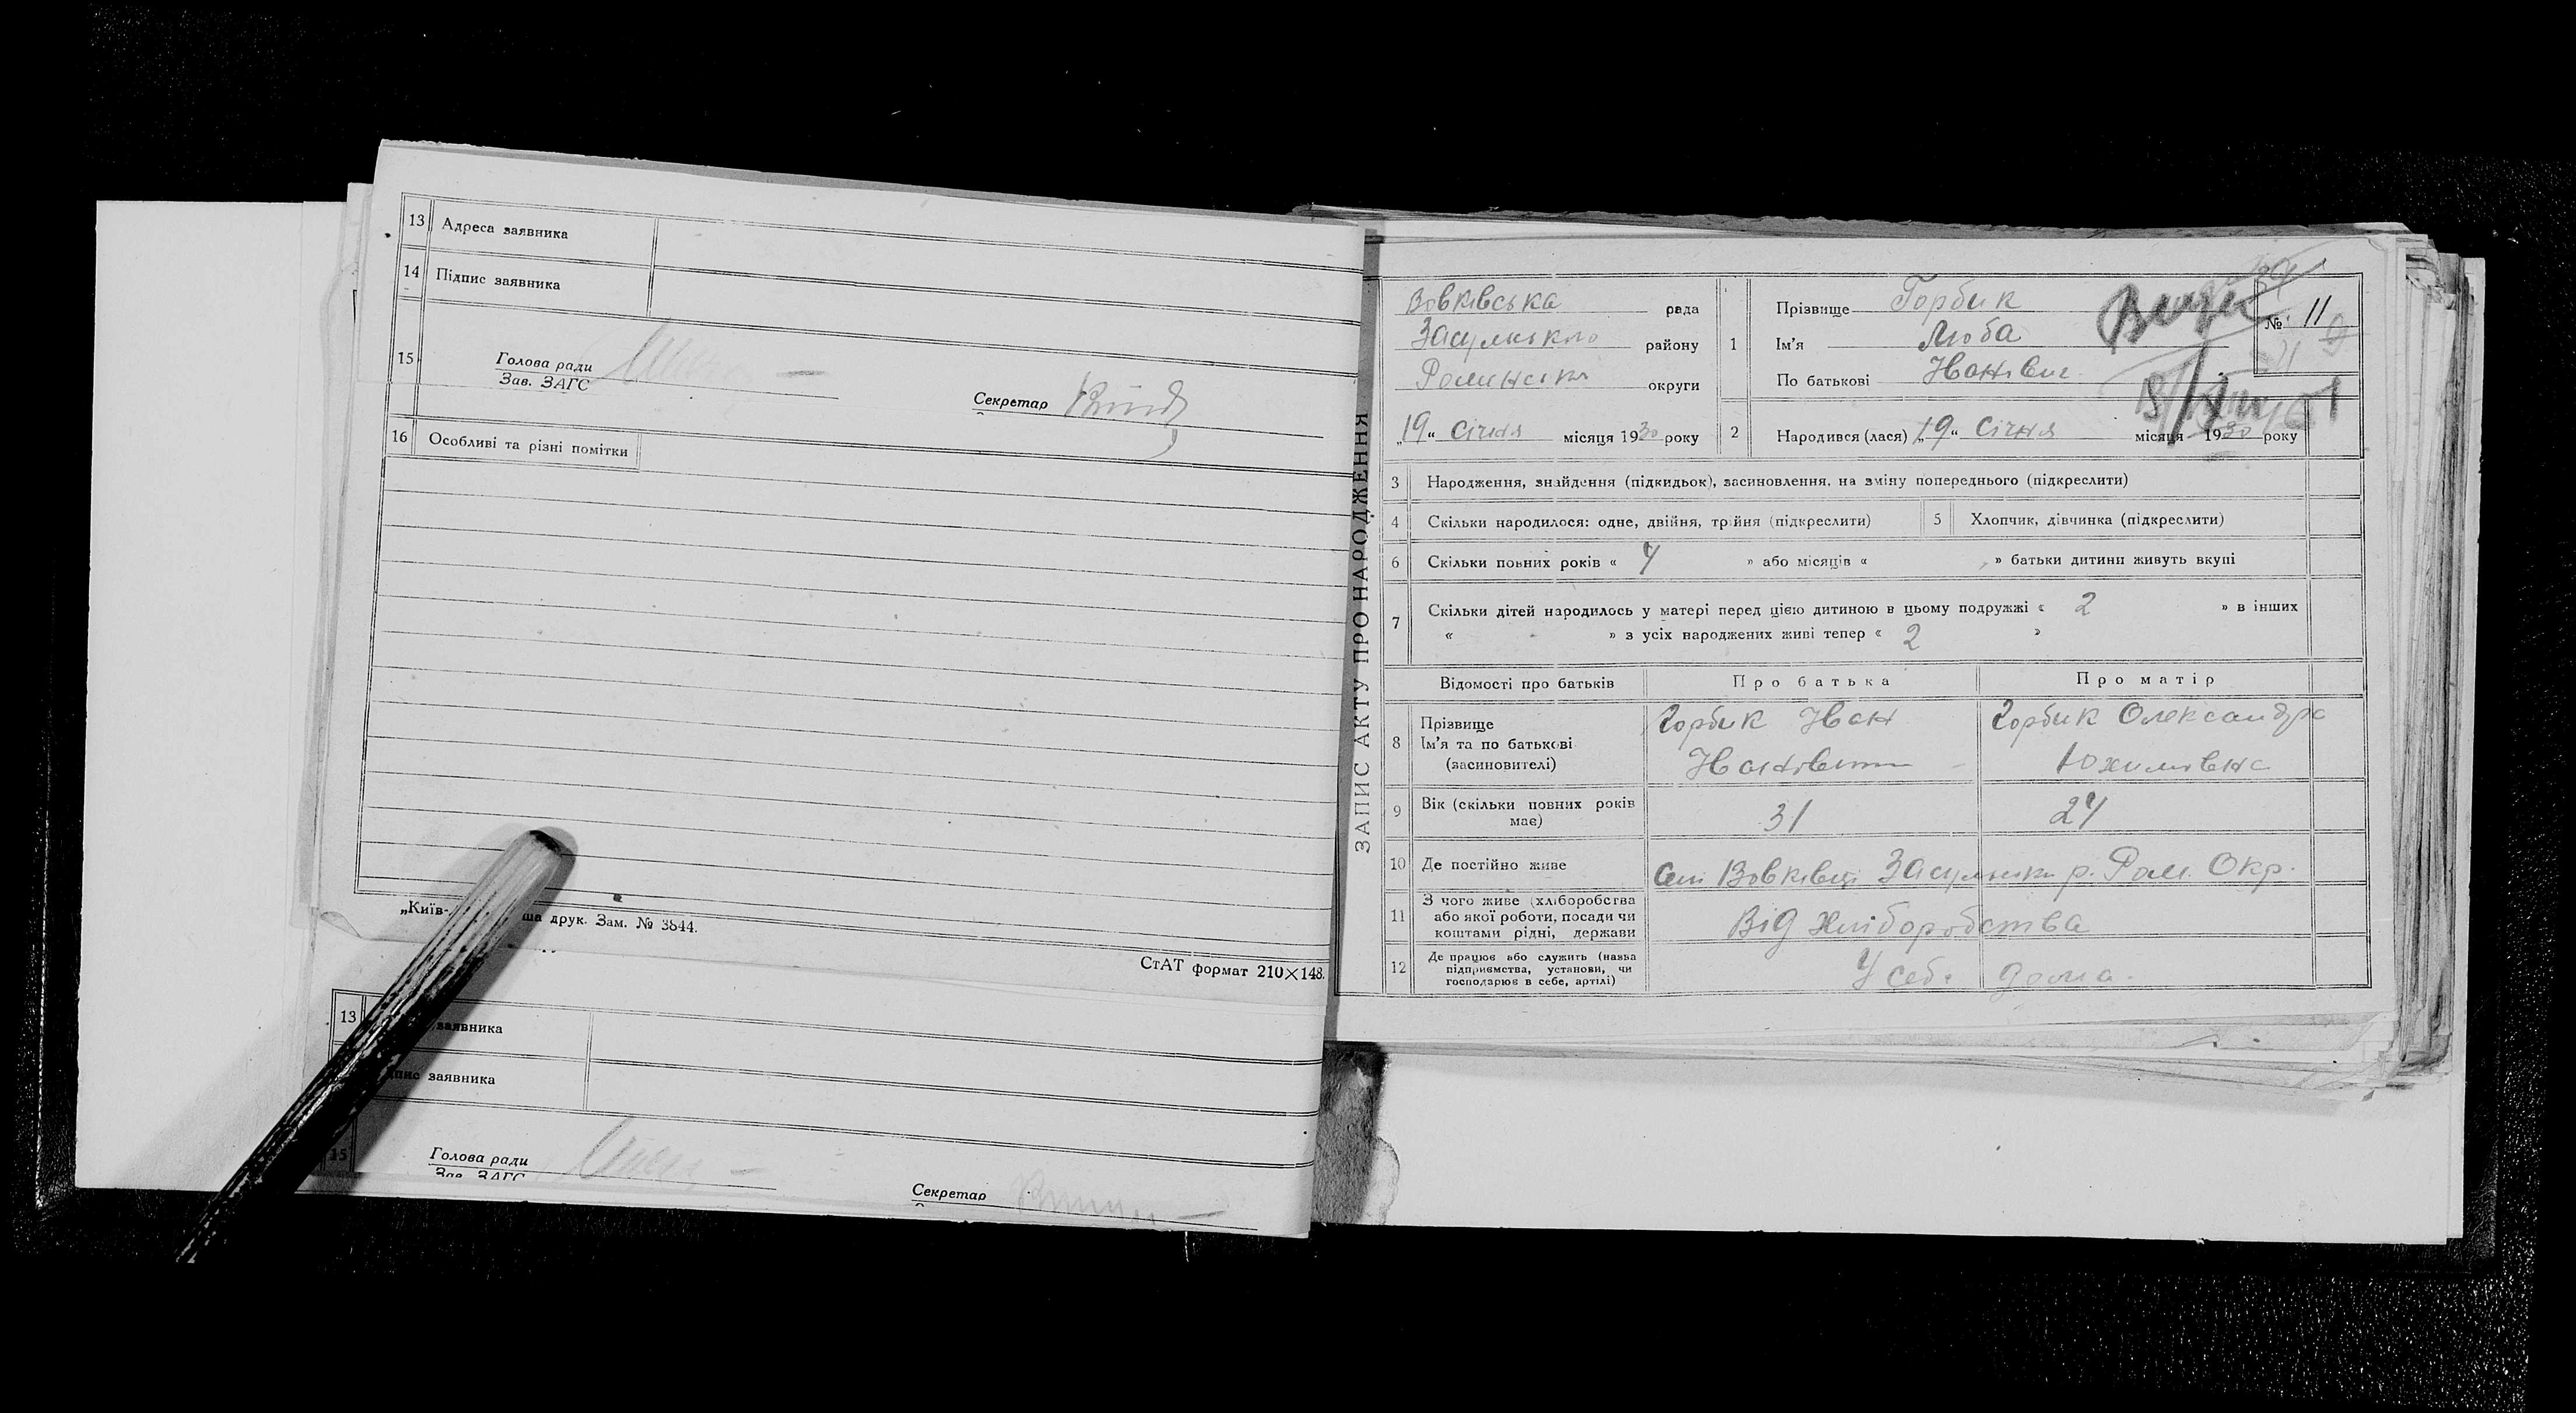 13 Адреса заявника
14 Підпис заявника
15 Голова ради
Зав. ЗАГС
Секретар
16 Особливі та різні помітки
„Київ-
ша друк. Зам. № 3844.
СтАТ формат 210×148.
13 заявника
заявника
15 Голова ради
Зав. ЗАГС
Секретар
ЗАПИС АКТУ ПРО НАРОДЖЕННЯ
Вовківська рада
району
округи
„19“ Січня місяця 1930 року
1 Прізвище Горбик
Ім’я Люба
По батькові
№ 11
2 Народився (лася) „19“ Січня місяця 1930 року
3 Народження, знайдення (підкидьок), засиновлення, на зміну попереднього (підкреслити)
4 Скільки народилося: одне, двійня, трійня (підкреслити)
5 Хлопчик, дівчинка (підкреслити)
6 Скільки повних років « » або місяців « » батьки дитини живуть вкупі
7 Скільки дітей народилось у матері перед цією дитиною в цьому подружжі « 2 » в інших
« » з усіх народжених живі тепер « 2 »
Відомості про батьків Про батька Про матір
8 Прізвище
Ім’я та по батькові
(засиновителі)
Горбик Іван
Іванович
Горбик Олександра
Юхимівна
9 Вік (скільки повних років
має)
31
10 Де постійно живе
Вовківці р. Ром. Окр.
11 З чого живе (хліборобства
або якої роботи, посади чи
коштами рідні, держави
Від хліборобства
12 Де працює або служить (назва
підприємства, установи, чи
господарює в себе, артілі)
У себе дома.